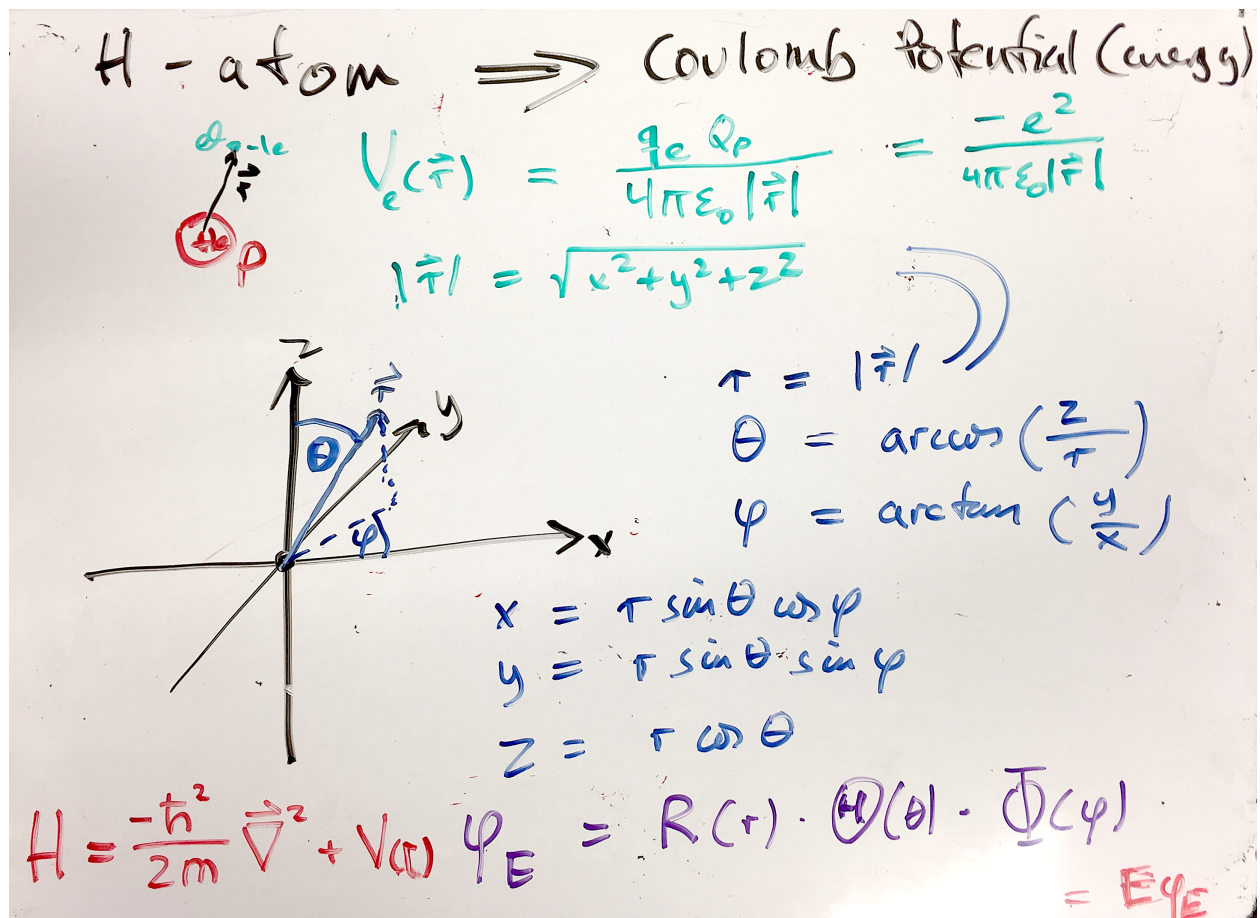 H - atom ⟹ Coulomb Potential (energy)
-1e
r⃗
+1e
p
V_e(r⃗) = q_e Q_p / 4πε₀|r⃗| = -e² / 4πε₀|r⃗|
|r⃗| = √(x²+y²+z²)
z
r⃗
y
θ
φ
x
r = |r⃗|
θ = arccos (z/r)
φ = arctan (y/x)
x = r sinθ cosφ
y = r sinθ sinφ
z = r cosθ
H = -ħ²/2m ∇⃗² + V(r) φ_E = R(r) · Θ(θ) · Φ(φ)
= E φ_E